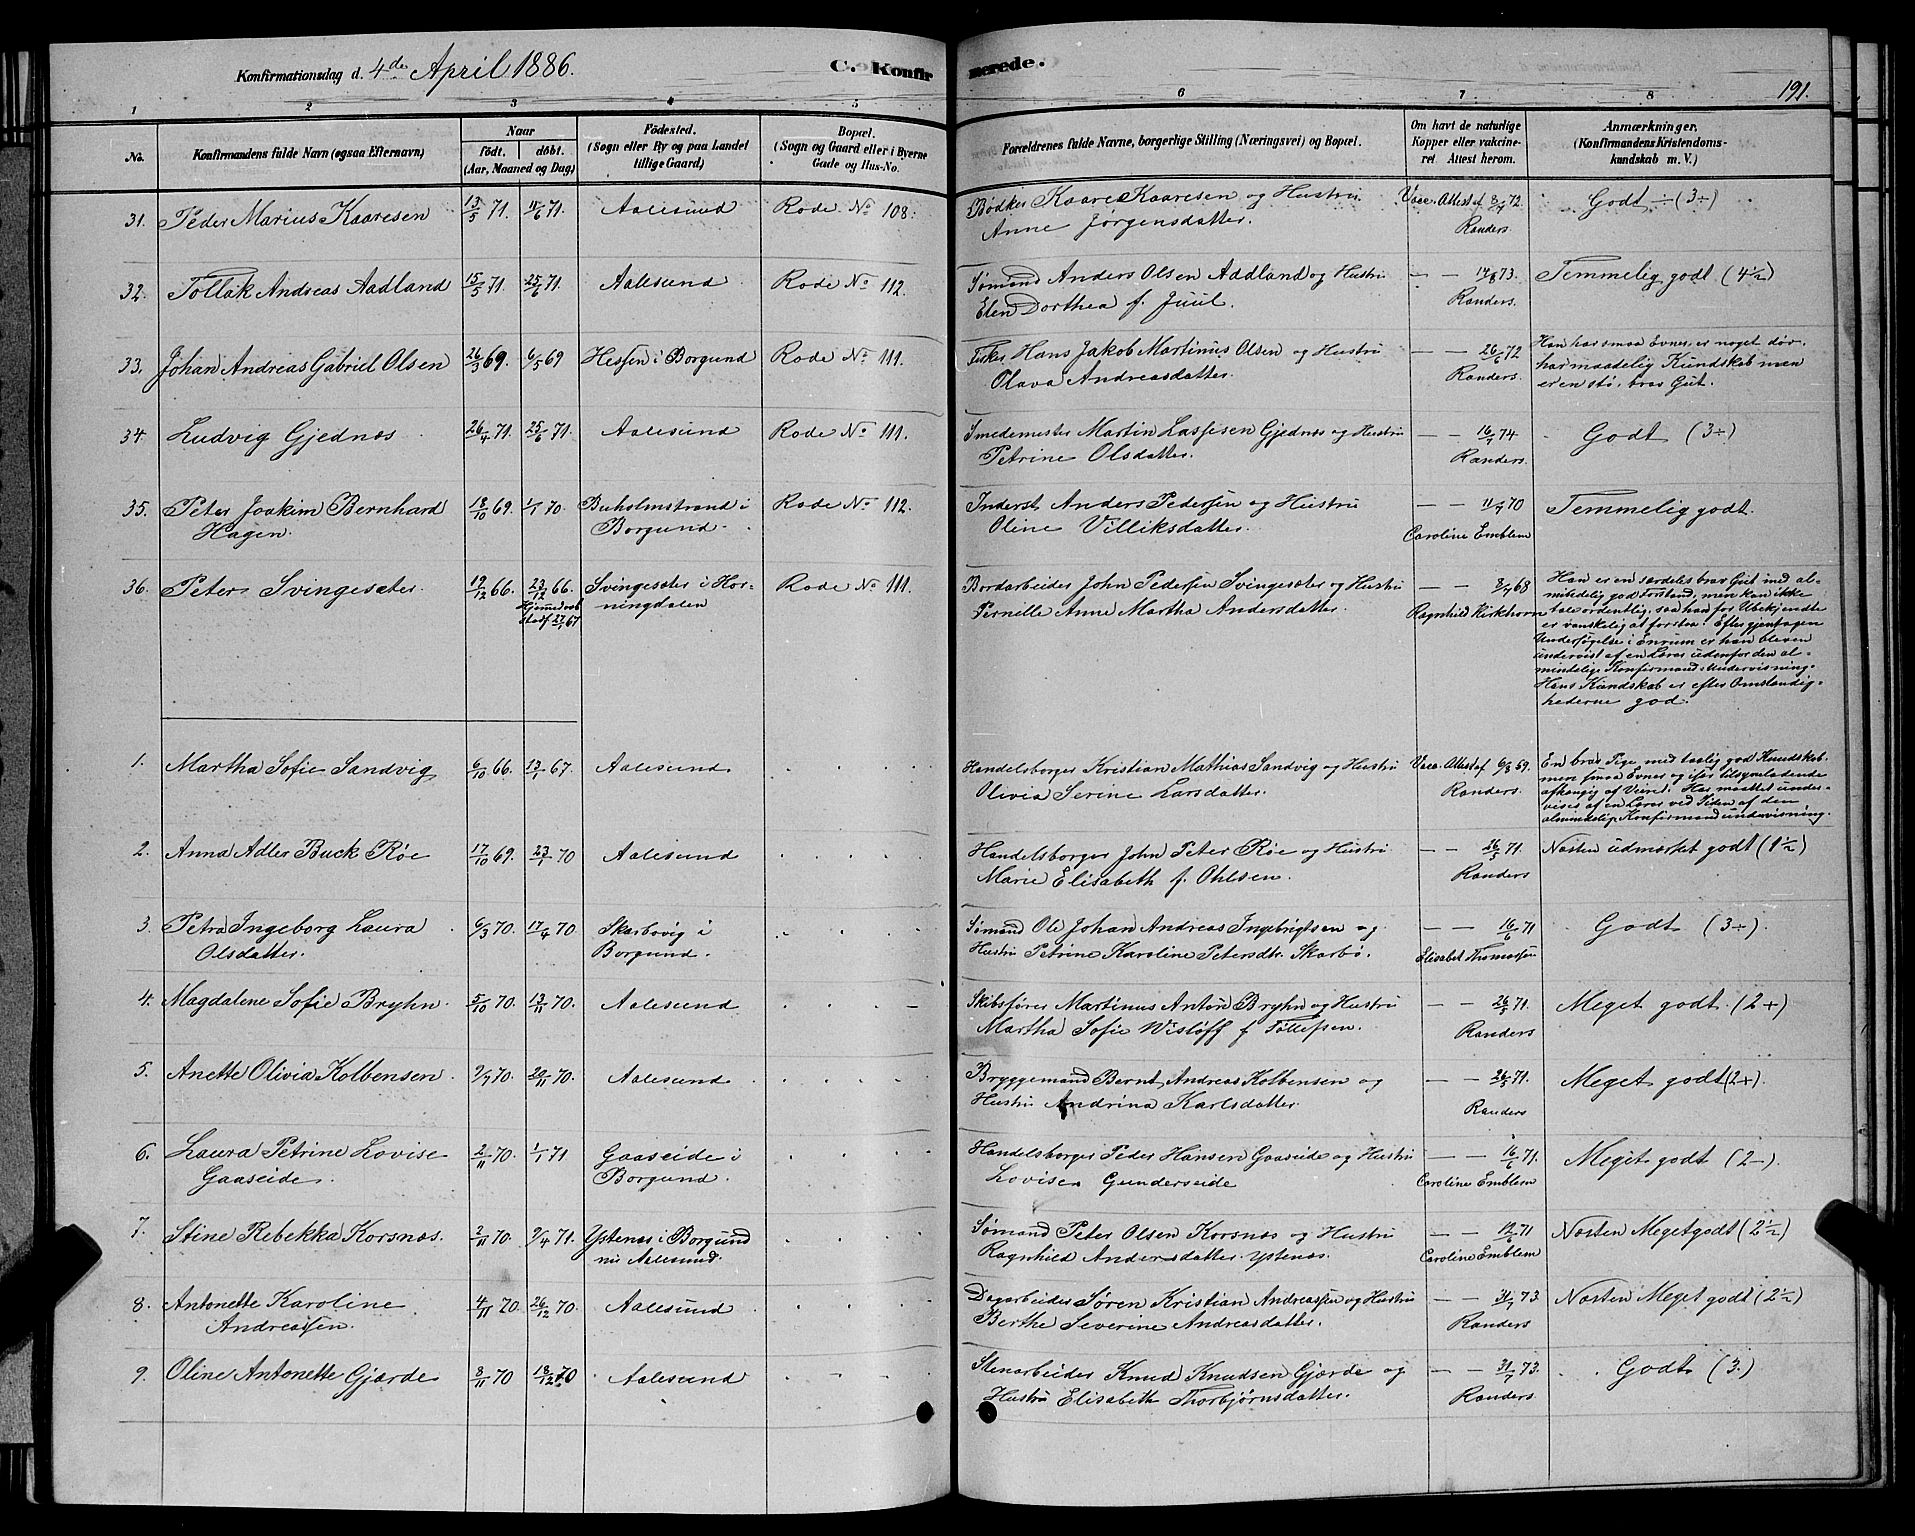 Konfirmationsdag d. 4de April 1886.
C. Konfirmerede.
191.
1 2 3 4 5 6 7 8
No.
Konfirmandens fulde Navn (ogsaa Efternavn)
Naar
født. døbt.
(Aar, Maaned og Dag)
Födested.
(Sogn eller By og paa Landet
tillige Gaard)
Bopæl.
(Sogn og Gaard eller i Byerne
Gade og Hus-No.
Forældrenes fulde Navne, borgerlige Stilling (Næringsvei) og Bopæl.
Om havt de naturlige
Kopper eller vakcine-
ret. Attest herom.
Anmærkninger.
(Konfirmandens Kristendoms-
kundskab m. V.)
31. Peder Marius Kaaresen 13/5 71. 11/6 71. Aalesund Rode No 108. Bødker Kaare Kaaresen og Hustru Vacc. Attest af 8/7 72. Godt ÷ (3÷)
Anne Jørgensdatter. Randers.
32. Tollak Andreas Aadland 15/5 71. 25/6 71. Aalesund Rode No 112. Sømand Anders Olsen Addland og Hustru — — 14/8 73. Temmelig godt (4½)
Elen Dorthea f. Juul. Randers.
33. Johan Andreas Gabriel Olsen 26/3 69. 6/5 69 Hessen i Borgund Rode No 111. Fisker Hans Jakob Martinus Olsen og Hustru — — 26/6 72 Han har smaa Evner, er noget døv,
Olava Andreasdatter. Randers. har maadelig Kundskab men
er en stø, brav Gut.
34. Ludvig Gjednæs 26/4 71. 25/6 71. Aalesund Rode No 111. Smedemester Martin Lassesen Gjednæs og Hustru — — 16/7 74 Godt (3÷)
Petrine Olsdatter. Randers.
35. Peter Joakim Bernhard 18/10 69. 1/1 70. Buholmstrand i Rode No 112. Inderst Anders Pedersen og Hustru — — 11/7 70 Temmelig godt.
Hagen. Borgund. Oline Villiksdatter. Caroline Emblem
36. Peter Svingesæter. 19/12 66. 23/12 66. Svingesæter i Hor- Rode No 111. Bordarbeider John Pedersen Svingesæter og Hustru — — 8/7 68 Han er en særdeles brav Gut med al-
Hjemmedøb ningdalen Pernille Anne Martha Andersdatter. Ragnhild Kirkhorn mindelig god Forstand, men kan ikke
Stadf. 27/1 67 tale ordentlig, saa han for Ubekjendte
er vanskelig at forstaa. Efter gjentagen
Undersøgelse i Enrum er han bleven
undervist af en Lærer udenfor den al-
mindelige Konfirmand-Undervisning.
Hans Kundskab er efter Omstændig-
hederne god.
1. Martha Sofie Sandvig 6/10 66. 13/1 67. Aalesund. Handelsborger Kristian Mathias Sandvig og Hustru Vacc. Attest af 6/8 69. En brav Pige med taalig god Kundskab.
Olivia Serine Larsdatter. Randers. men smaa Evner og især tilsyneladende
afhængig af Veiret. Har maattet under-
vises af en Lærer ved Siden af den
almindelig Konfirmandundervisning.
2. Anna Adler Buck Røe 17/10 69. 23/1 70 Aalesund Handelsborger John Peter Røe og Hustru — — 26/5 71. Næsten udmærket godt (1½)
Marie Elisabeth f. Ohlsen. Randers
3. Petra Ingeborg Laura 6/3 70. 17/4 70 Skarbøvig i Sømand Ole Johan Andreas Ingebrigtsen og — — 16/6 71 Godt (3÷).
Olsdatter. Borgund. Hustru Petrine Karoline Petersdtr. Skarbø. Elisabet Thomassen
4. Magdalene Sofie Bryhn 5/10 70. 13/11 70. Aalesund Skibsfører Martinus Anton Bryhn og Hustru — — 26/5 71. Meget godt. (2+)
Martha Sofie Wisløff f Tollefsen. Randers
5. Anette Olivia Kolbensen 9/7 70. 20/11 70. Aalesund Bryggemand Bernt Andreas Kolbensen og — — 26/5 71. Meget godt (2+).
Hustru Andrina Karlsdatter. Randers
6. Laura Petrine Lovise 2/11 70. 1/1 71 Gaaseide i Handelsborger Peder Hansen Gaaseide og Hustru — — 16/6 71. Meget godt (2-).
Gaaseide. Borgund. Lovise Gunderseide Caroline Emblem
7. Stine Rebekka Korsnæs. 2/11 70. 9/4 71. Ystenæs i Borgund Sømand Peter Olsen Korsnæs og Hustru — — 12/6 71 Næsten Meget godt (2½)
nu Aalesund. Ragnhild Andersdatter Ystenæs. Caroline Emblem
8. Antonette Karoline 4/11 70. 26/12 70. Aalesund Dagarbeider Søren Kristian Andreassen og Hustru — — 31/7 73. Næsten Meget godt (2½)
Andreassen. Berthe Severine Andreasdatter. Randers
9. Oline Antonette Gjærde 8/11 70 18/12 70 Aalesund Stenarbeider Knud Knudsen Gjærde og — — 31/7 73. Godt (3.)
Hustru Elisabeth Thorbjørnsdatter. Randers